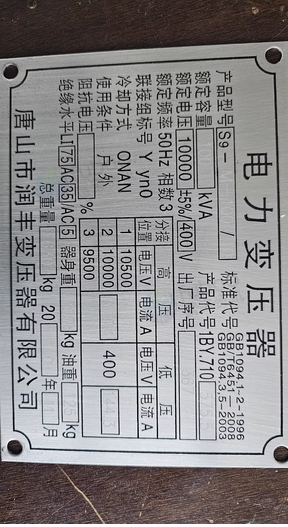 电力变压器
产品型号S9- /
标准代号 GB1094.1-2-1996
GB/T6451-2008
GB1094.3.5-2003
额定容量 kVA
产品代号1BY.710
额定电压 10000 ±5%/400 V 出厂序号
额定频率 50Hz 相数 3
联接组标号 Y yn0
冷却方式 ONAN
使用条件 户外
阻抗电压 %
分接位置 高压 低压
电压V 电流A 电压V 电流A
1 10500
2 10000 400
3 9500
绝缘水平LI 75 AC 35/AC 5 器身重 kg 油重 kg
总重量 kg 20 年 月
唐山市润丰变压器有限公司